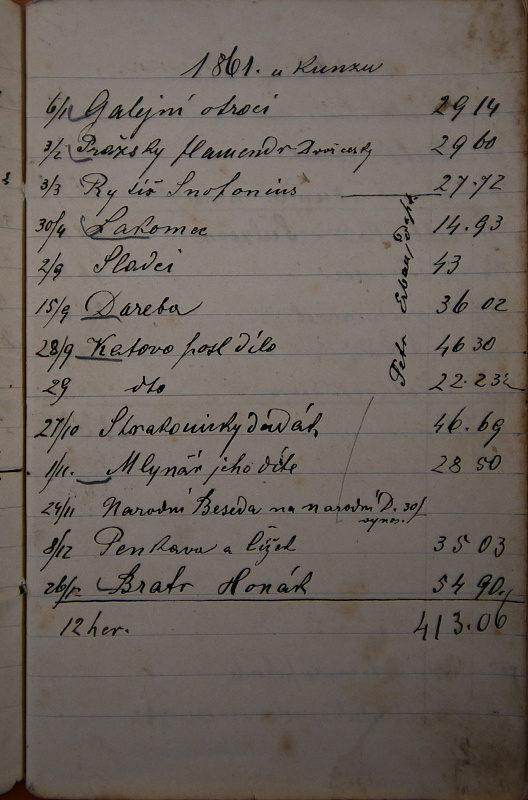 1861. u Kunzu
6/1 Galejní otroci 29 14
3/2 Pražsky flamendr Dvořácesky 29 60
3/3 Rytíř Snofonius 27.72
30/4 Lakomec 14.93
2/9 Sladci 43
15/9 Dareba 36 02
28/9 Katovo posl dílo 46 30
29 dto 22.23
27/10 Strakonicky dudák 46.69
1/11. Mlynář jeho díte 28 50
24/11 Narodní Beseda na narodní D. 30/
vynos.
8/12 Penkava a lížek 35 03
26/12 Bratr Honák 54 90
12 her. 413.06
Petr